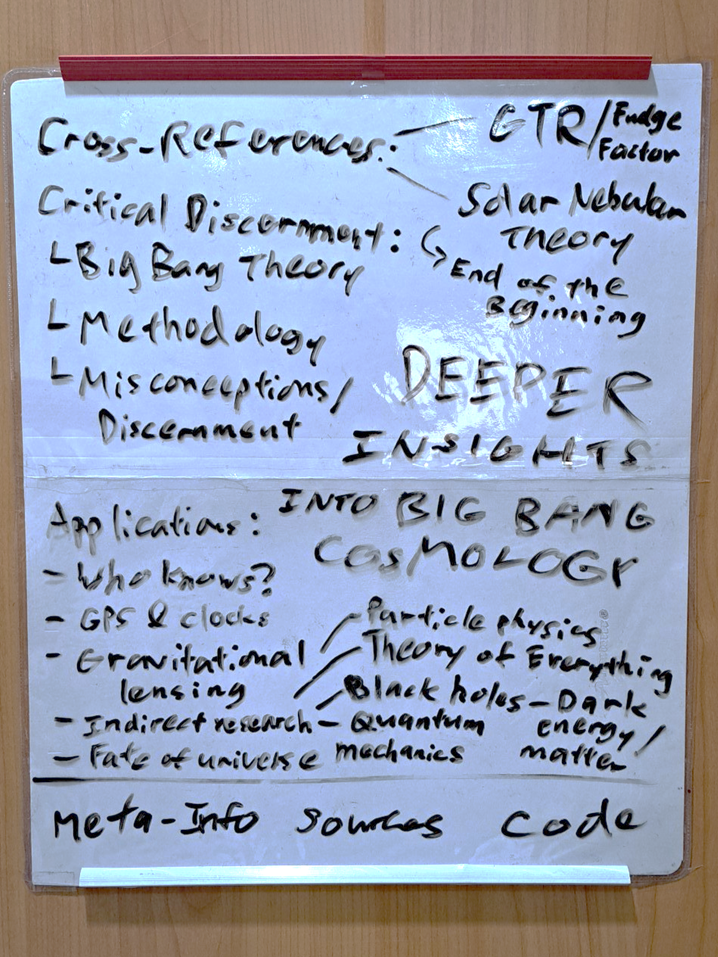 Cross-References:
GTR/Fudge
Factor
Solar Nebular
Theory
End of the
Beginning
Critical Discernment:
Big Bang Theory
Methodology
Misconceptions/
Discernment
DEEPER
INSIGHTS
INTO BIG BANG
COSMOLOGY
Applications:
- Who knows?
- GPS & clocks
- Gravitational
lensing
- Indirect research - Quantum
mechanics
Particle physics
Theory of Everything
Black holes - Dark
energy/
matter
- Fate of universe
Meta-Info sources code